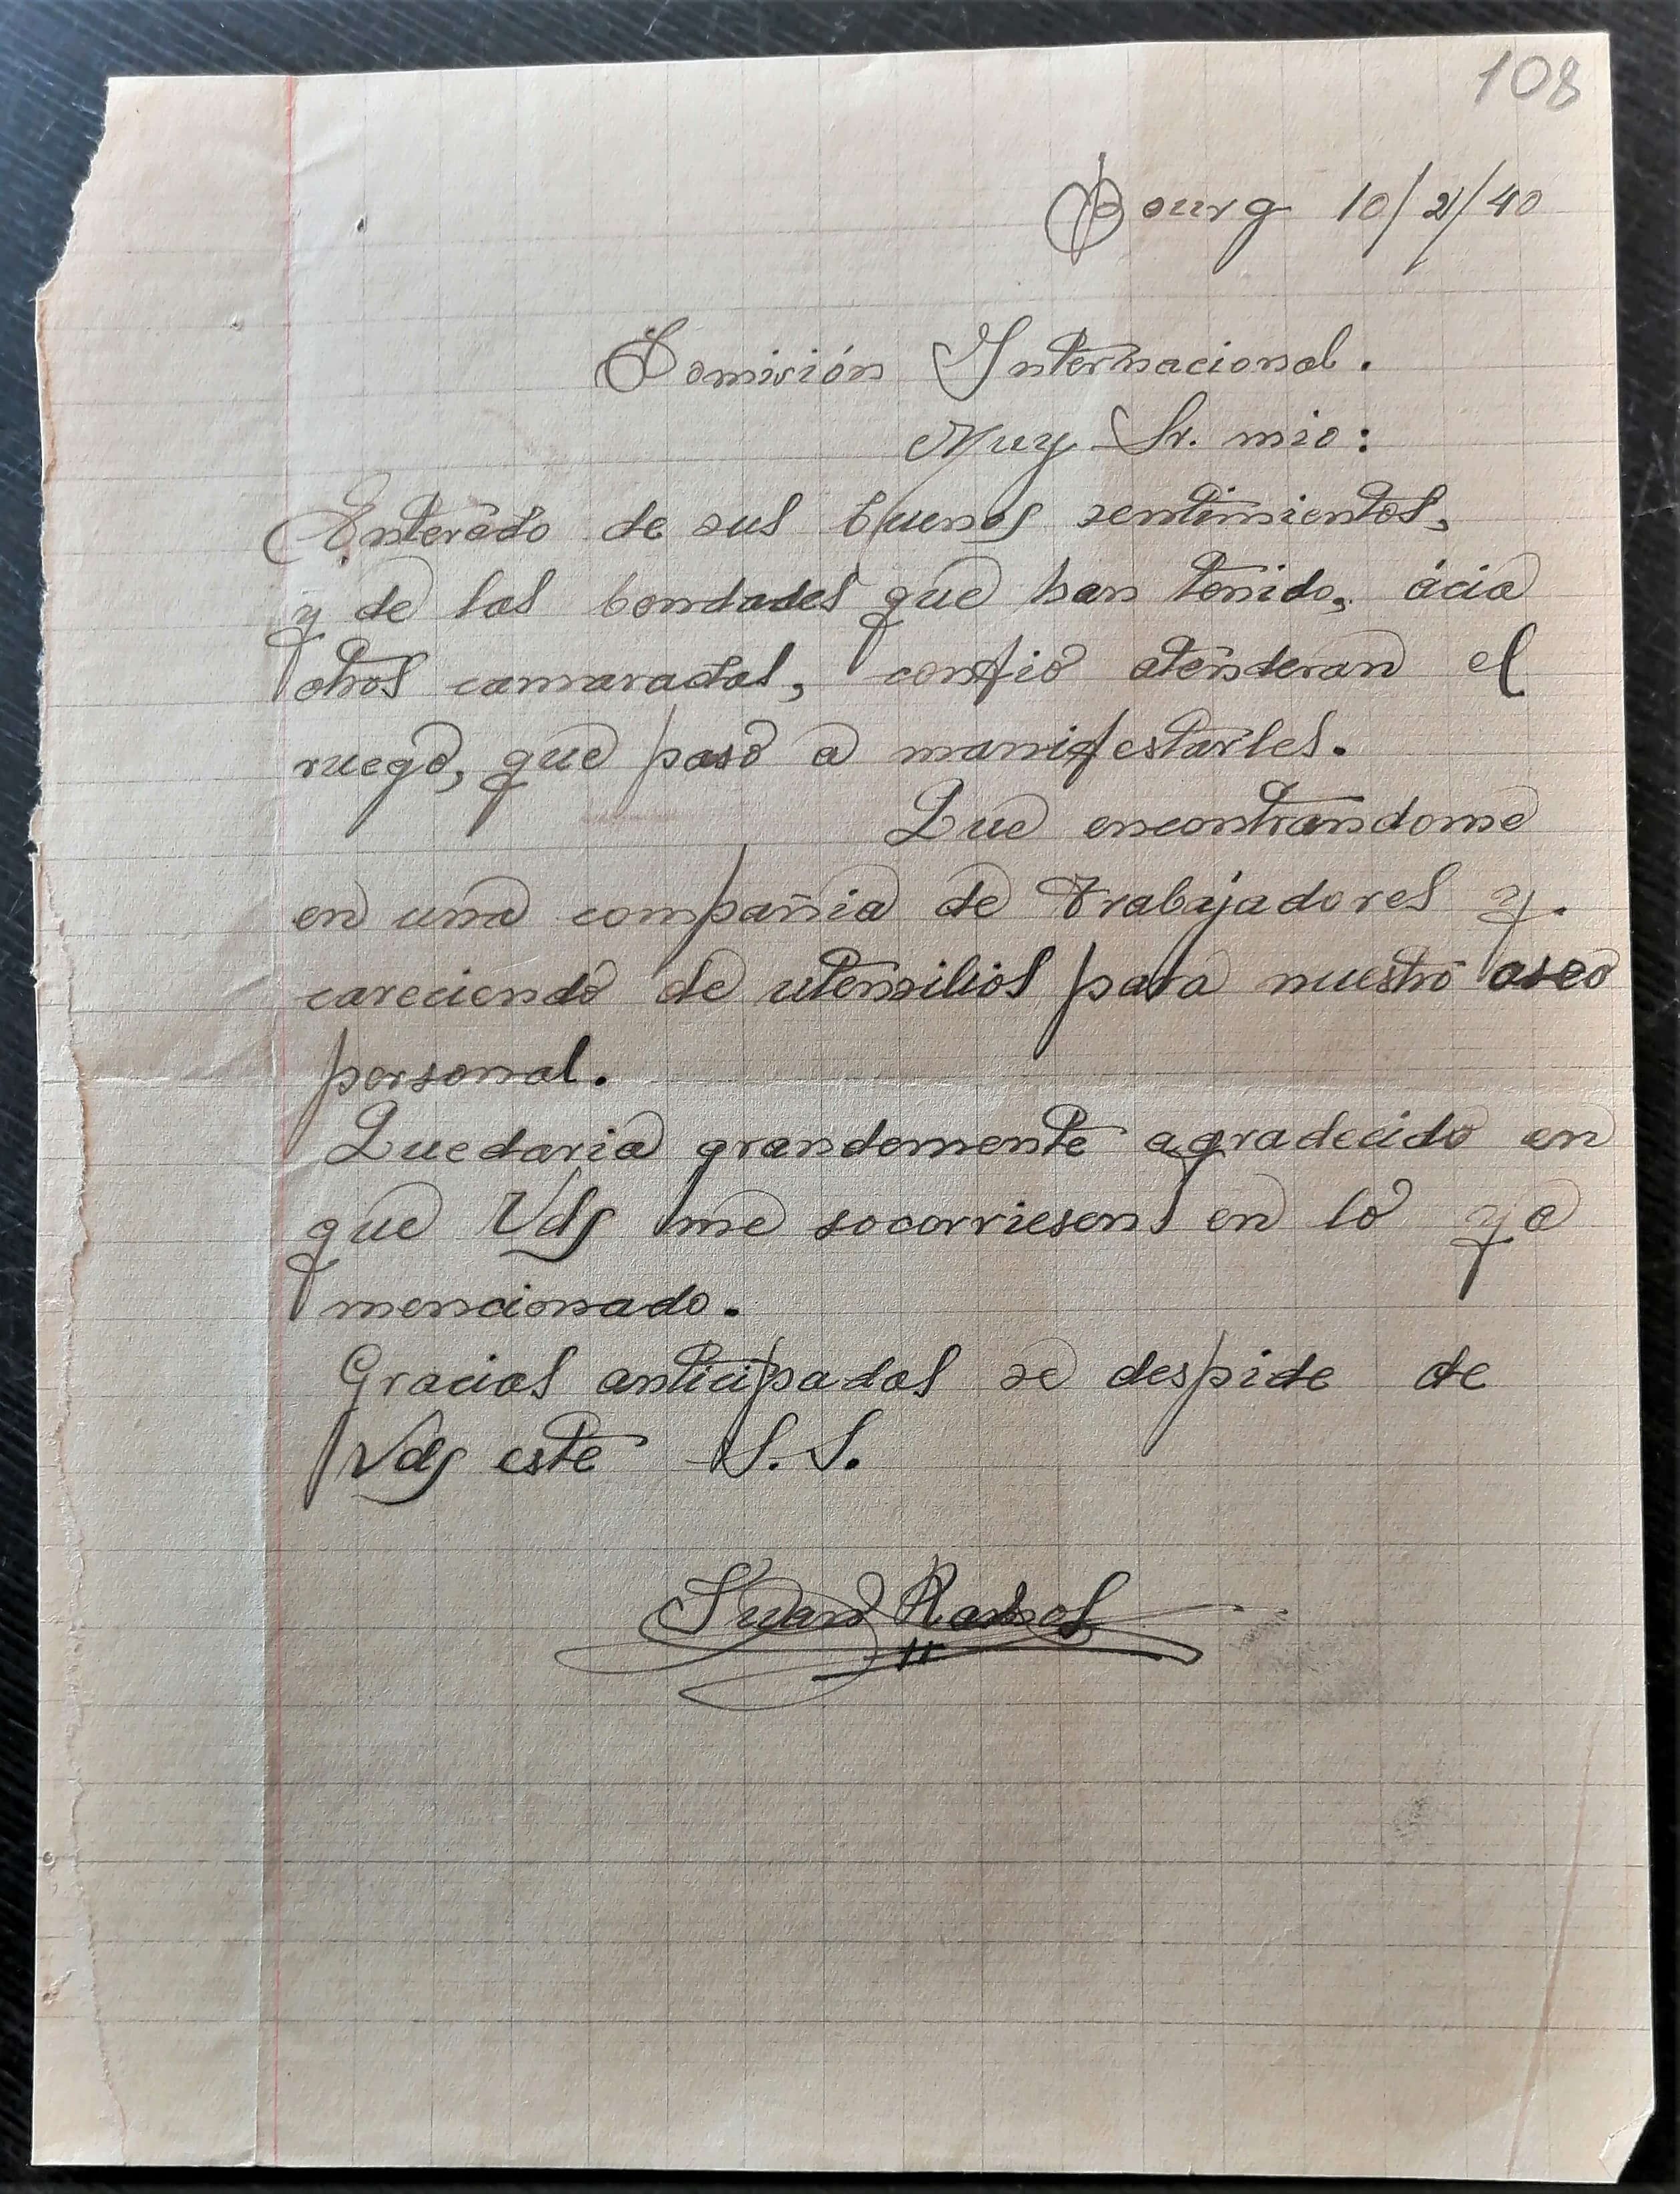 108
Bourg 10/2/40
Comisión Internacional.
Muy Sr. mio:
Enterado de sus buenos sentimientos,
y de las bondades que han tenido, ácia
otros camaradas, confio atenderan el
ruego, que paso a manifestarles.
Que encontrandome
en una compañia de trabajadores y.
careciendo de utensilios para nuestro aseo
personal.
Quedaria grandemente agradecido en
que Vds me socorriesen en lo ya
mencionado.
Gracias anticipadas se despide de
Vds este S.S.
Juan Ramos